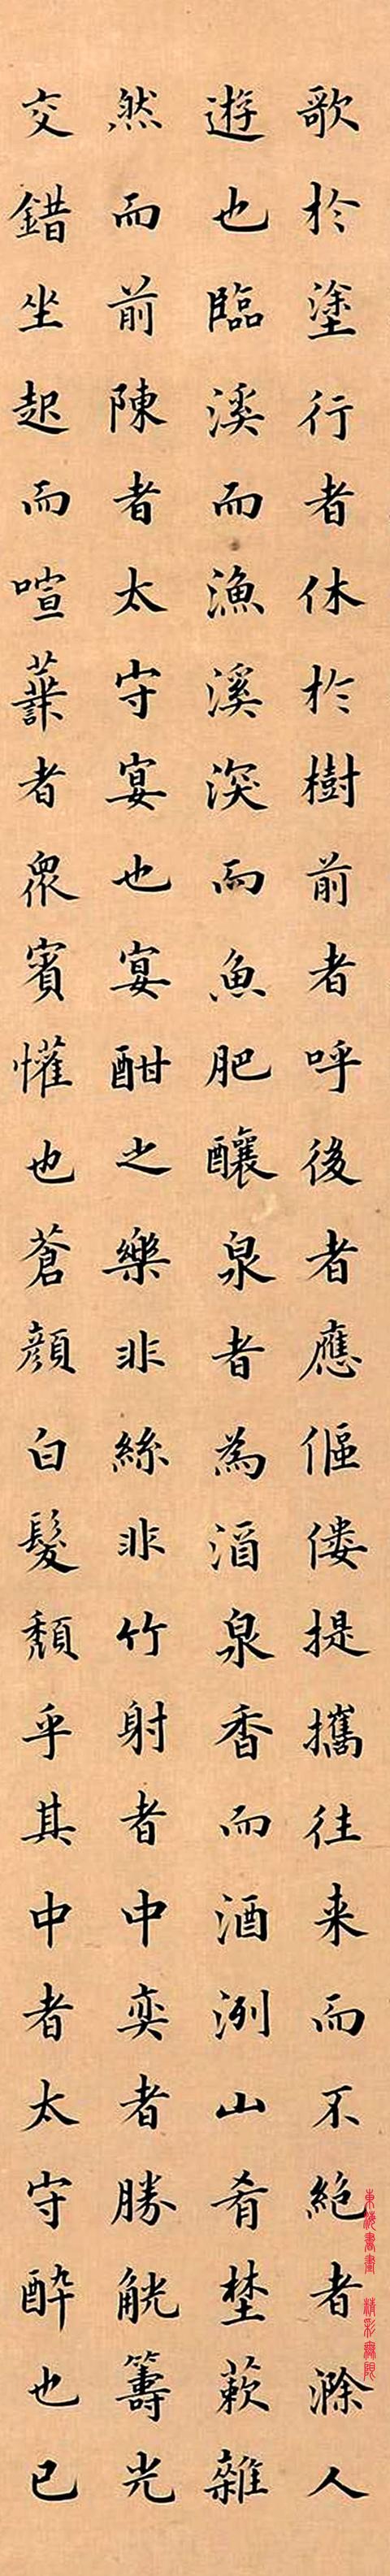 歌於塗行者休於樹前者呼後者應傴僂提攜往来而不絕者滁人
遊也臨溪而漁溪深而魚肥釀泉者為酒泉香而酒洌山肴埜蔌雜
然而前陳者太守宴也宴酣之樂非絲非竹射者中奕者勝觥籌光
交錯坐起而喧譁者衆賓懽也蒼顏白髮頹乎其中者太守醉也已
東海書畫 精彩無限